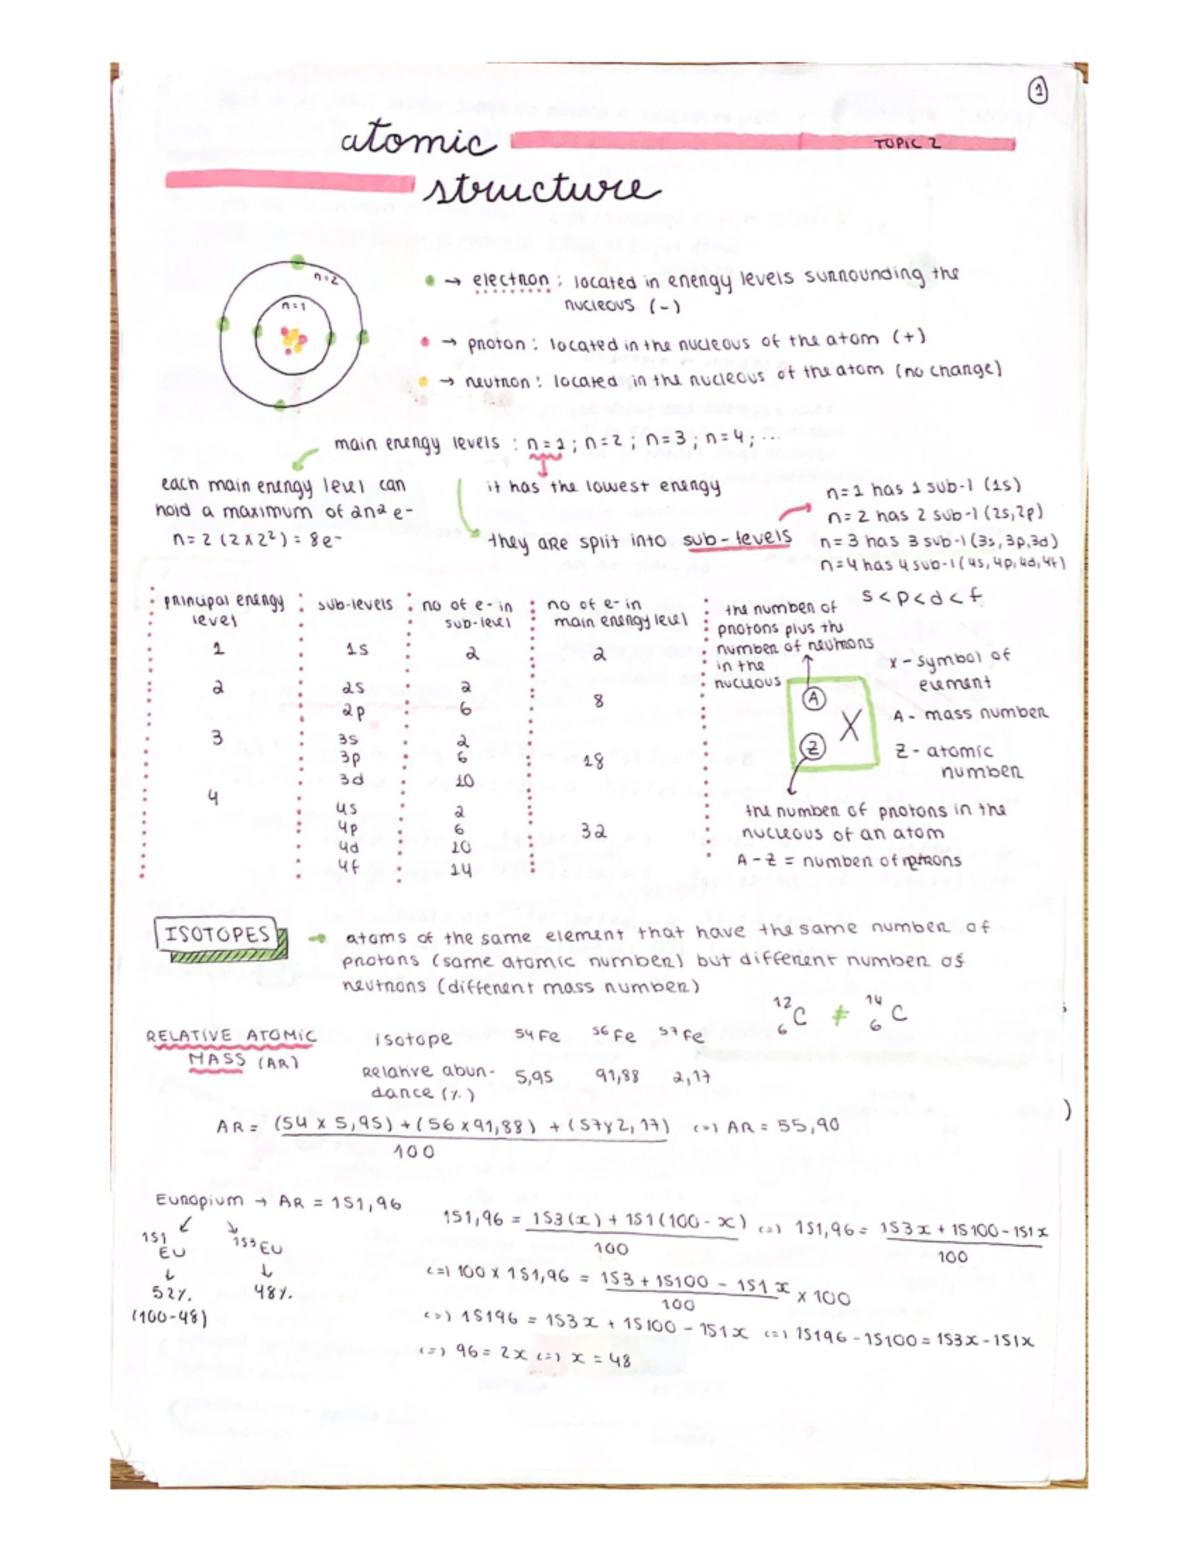 1
atomic
TOPIC 2
structure
n=2
n=1
→ electron : located in energy levels surrounding the
nucleous (-)
→ proton : located in the nucleous of the atom (+)
→ neutron : located in the nucleous of the atom (no change)
main energy levels : n=1 ; n=2 ; n=3 ; n=4 ; ...
each main energy level can
hold a maximum of 2n² e-
n=2 (2x2²) = 8e-
it has the lowest energy
they are split into sub-levels
n=1 has 1 sub-l (1s)
n=2 has 2 sub-l (2s,2p)
n=3 has 3 sub-l (3s,3p,3d)
n=4 has 4 sub-l (4s,4p,4d,4f)
s<p<d<f
principal energy level sub-levels no of e- in sub-level no of e- in main energy level
1 1s 2 2
2 2s 2 8
2p 6
3 3s 2 18
3p 6
3d 10
4 4s 2 32
4p 6
4d 10
4f 14
the number of
protons plus the
number of neutrons
in the
nucleous
A
X
Z
x - symbol of
element
A - mass number
Z - atomic
number
the number of protons in the
nucleous of an atom
A-Z = number of
ISOTOPES
→ atoms of the same element that have the same number of
protons (same atomic number) but different number of
neutrons (different mass number)
¹²₆C ≠ ¹⁴₆C
RELATIVE ATOMIC
MASS (AR)
isotope 54Fe 56Fe 57Fe
Relative abun- 5,95 91,88 2,17
dance (%)
AR = (54 x 5,95) + (56 x 91,88) + (57 x 2,17) (=) AR = 55,90
100
Europium → AR = 151,96
151 Eu 153 Eu
52% 48%
(100-48)
151,96 = 153(x) + 151(100-x) (=) 151,96 = 153x + 15100 - 151x
100 100
(=) 100 x 151,96 = 153 + 15100 - 151x x 100
100
(=) 15196 = 153x + 15100 - 151x (=) 15196 - 15100 = 153x - 151x
(=) 96 = 2x (=) x = 48